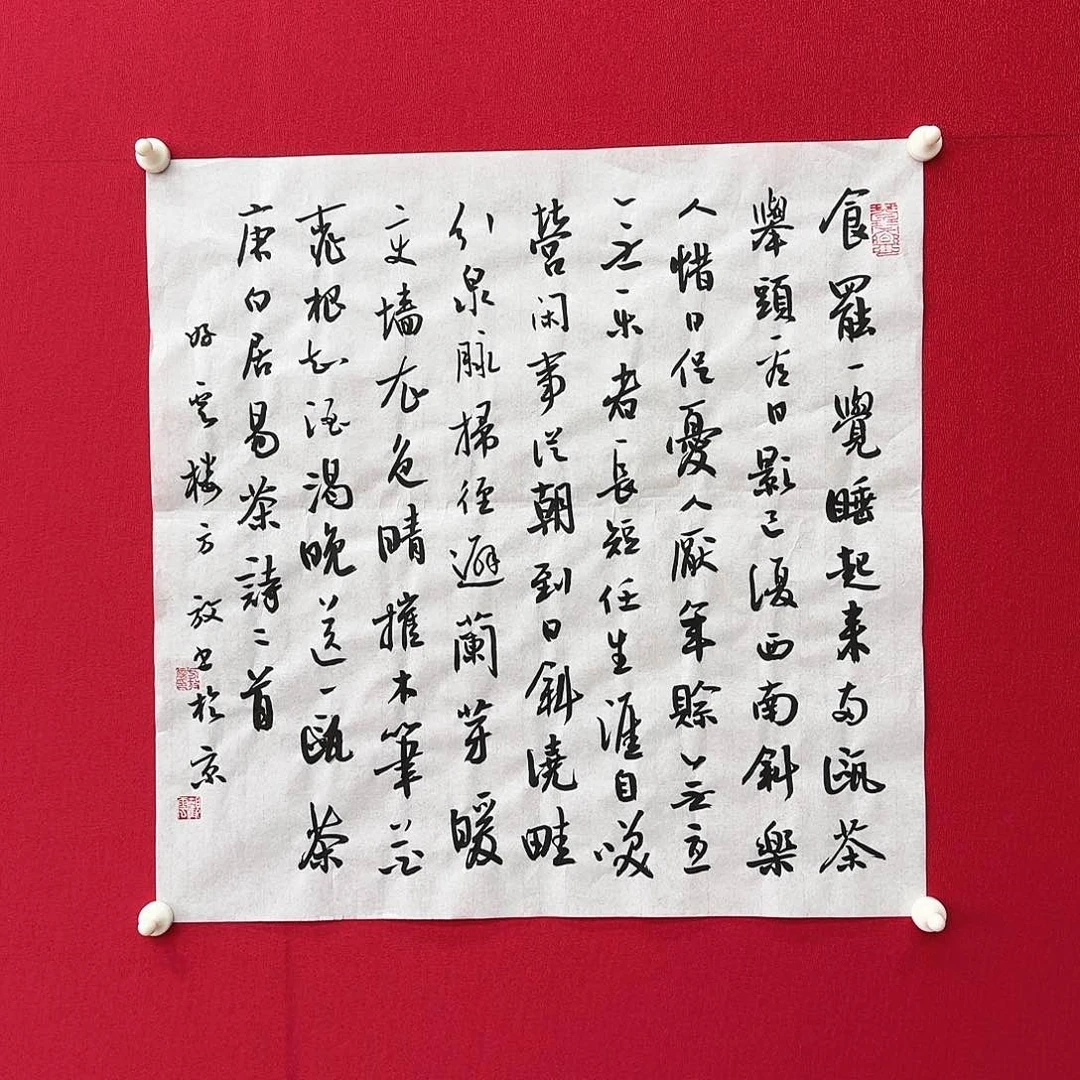 食罷一覺睡起來兩甌茶
舉頭看日影已復西南斜樂
人惜日促憂人厭年賒無憂
無樂者長短任生涯自笑
營闲事從朝到日斜澆畦
引泉脈掃徑避蘭芽暖
變墻衣色晴催木筆花
桃根知酒渴晚送一甌茶
唐白居易茶詩二首
好雲楼方放书於京